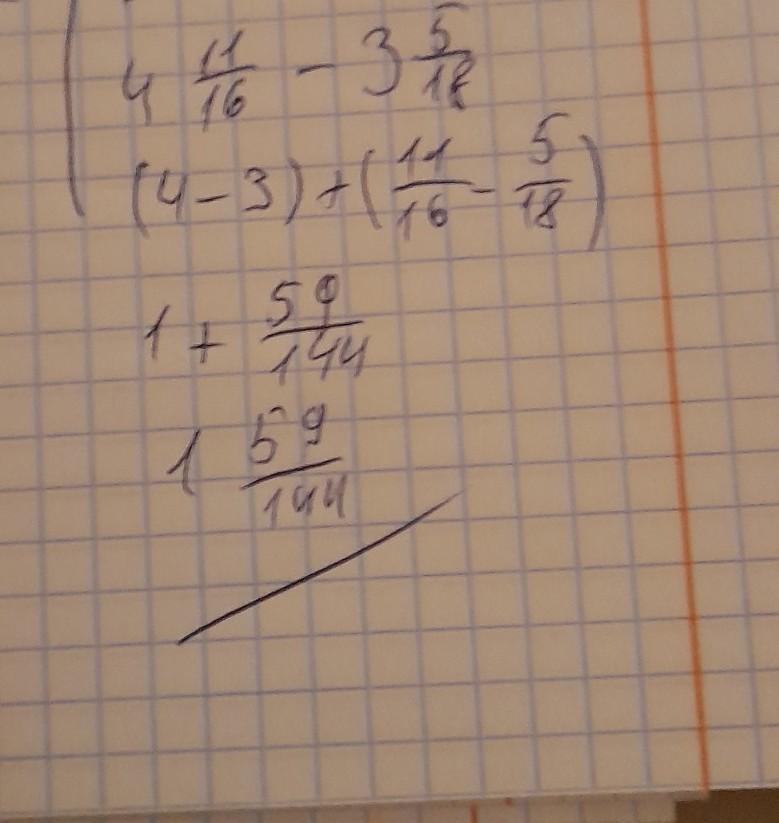 4 11/16 - 3 5/18
(4-3)+(11/16 - 5/18)
1 + 59/144
1 59/144